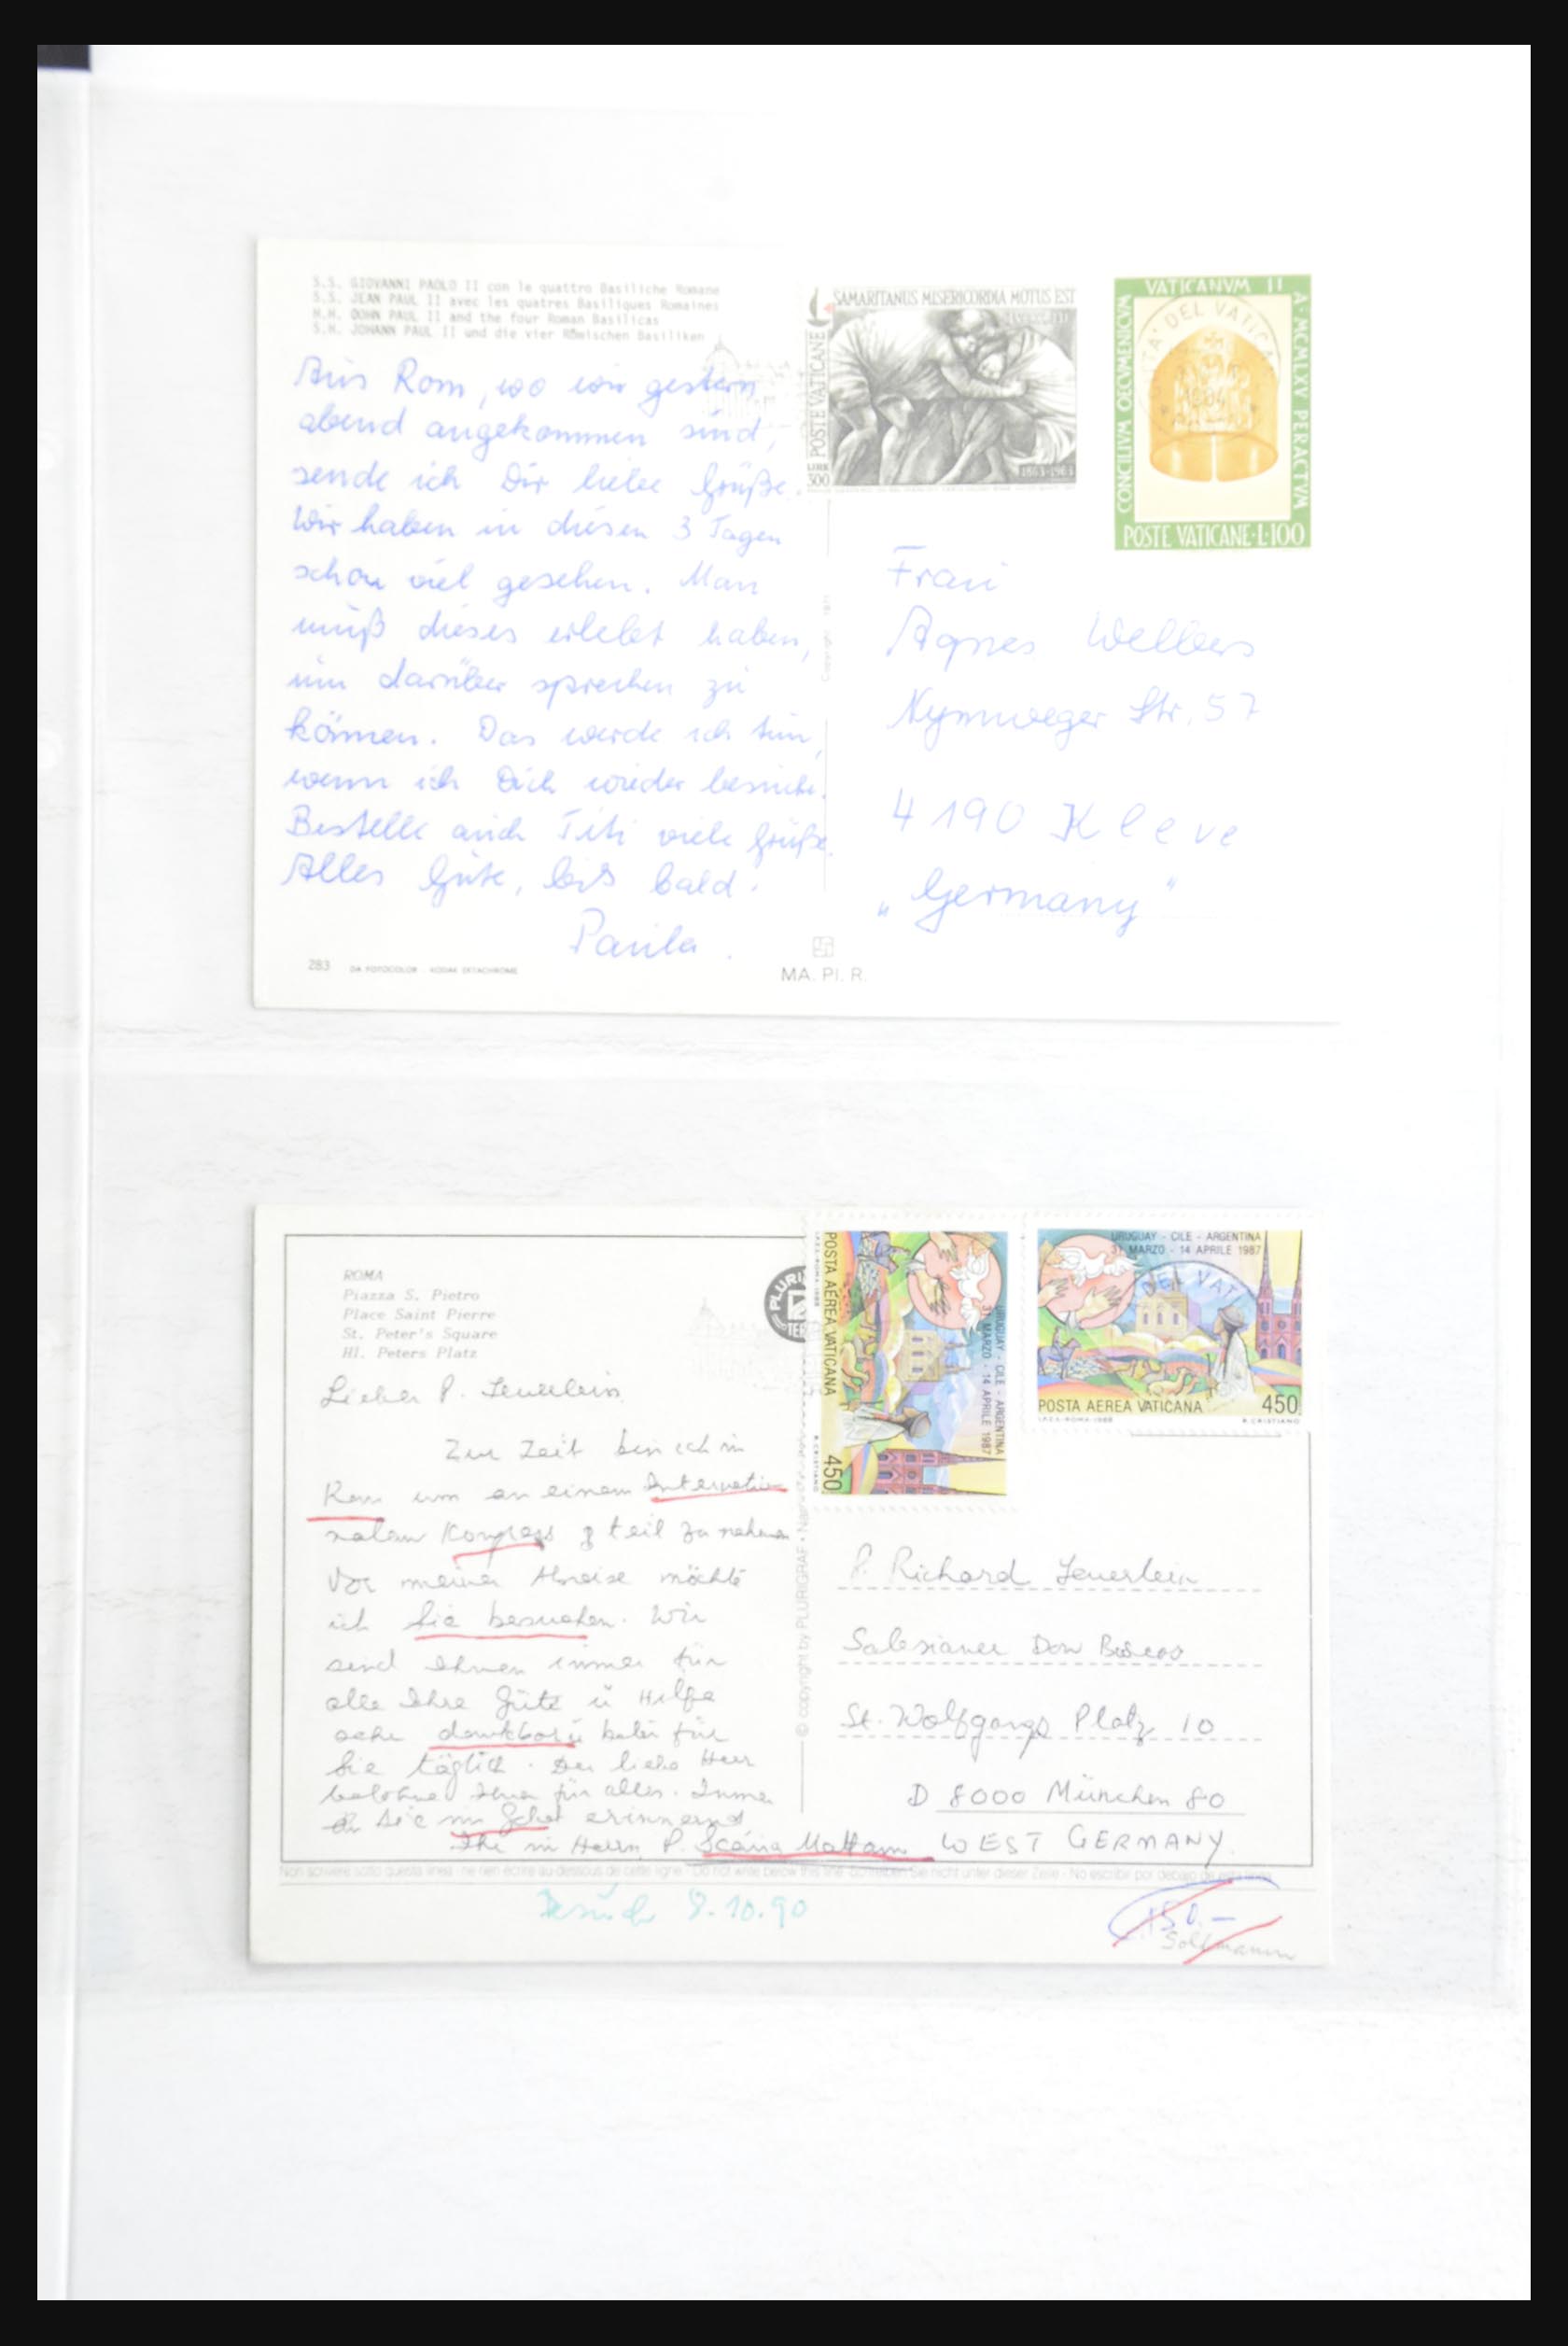 S.S. GIOVANNI PAOLO II con le quattro Basiliche Romane
S.S. JEAN PAUL II avec les quatres Basiliques Romaines
H.H. DOHN PAUL II and the four Roman Basilicas
S.H. JOHANN PAUL II und die vier Römischen Basiliken
Aus Rom, wo wir gestern
abend angekommen sind,
sende ich Dir liebe Grüße.
Wir haben in diesen 3 Tagen
schon viel gesehen. Man
muß dieses erlebt haben,
um darüber sprechen zu
können. Das werde ich tun,
wenn ich Dich wieder besuche.
Bestelle auch Titi viele Grüße.
Alles Gute, bis bald.
Paula.
283 DA FOTOCOLOR - KODAK EKTACHROME
MA. PI. R.
Copyright 1971
SAMARITANUS MISERICORDIA MOTUS EST
POSTE VATICANE
LIRE
500
1863-1963
VATICANVM II
CONCILIVM OECVMENICVM
A·MCMLXV PERACTVM
POSTE VATICANE·L·100
DEL VATICA
Frau
Agnes Welbers
Nymweger Str. 57
4190 Kleve
„Germany"
ROMA
Piazza S. Pietro
Place Saint Pierre
St. Peter's Square
Hl. Peters Platz
PLURI
TER
Lieber P. Feuerlein
Zur Zeit bin ich in
Rom um an einem Internatio
nalen Kongress teil zu nehmen
Vor meiner Abreise möchte
ich Sie besuchen. Wir
sind Ihnen immer für
alle Ihre Güte u Hilfe
sehr dankbar u beten für
Sie täglich. Der liebe Herr
belohne Ihnen für alles. Immer
an Sie im Gebet erinnernd
Ihr im Herrn P. Scaria Mattam
© copyright by PLURIGRAF
POSTA AEREA VATICANA
450
URUGUAY - CILE - ARGENTINA
31 MARZO - 14 APRILE 1987
I.P.Z.S.-ROMA-1988
R.CRISTIANO
URUGUAY - CILE - ARGENTINA
31 MARZO - 14 APRILE 1987
DEL VAT
POSTA AEREA VATICANA 450
I.P.Z.S.-ROMA-1988 R.CRISTIANO
P. Richard Feuerlein
Salesianer Don Boscos
St. Wolfgangs Platz 10
D 8000 München 80
WEST GERMANY.
Non scrivere sotto questa linea - ne rien écrire au dessous de cette ligne - Do not write below this line - Schreiben Sie nicht unter dieser Zeile - No escribir por debajo de esta linea
Besuch 9.10.90
150.-